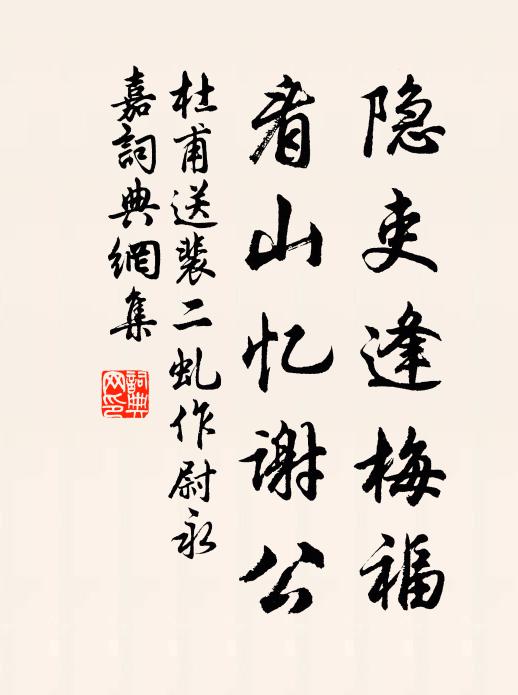 隐吏逢梅福
看山忆谢公
杜甫送裴二虬作尉永
嘉詞典網集
詞典网印